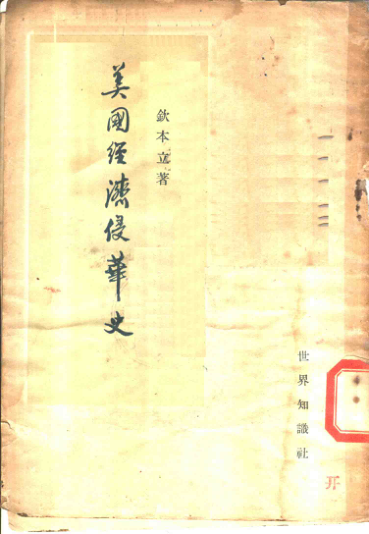 美國經濟侵華史
欽本立著
世界知識社